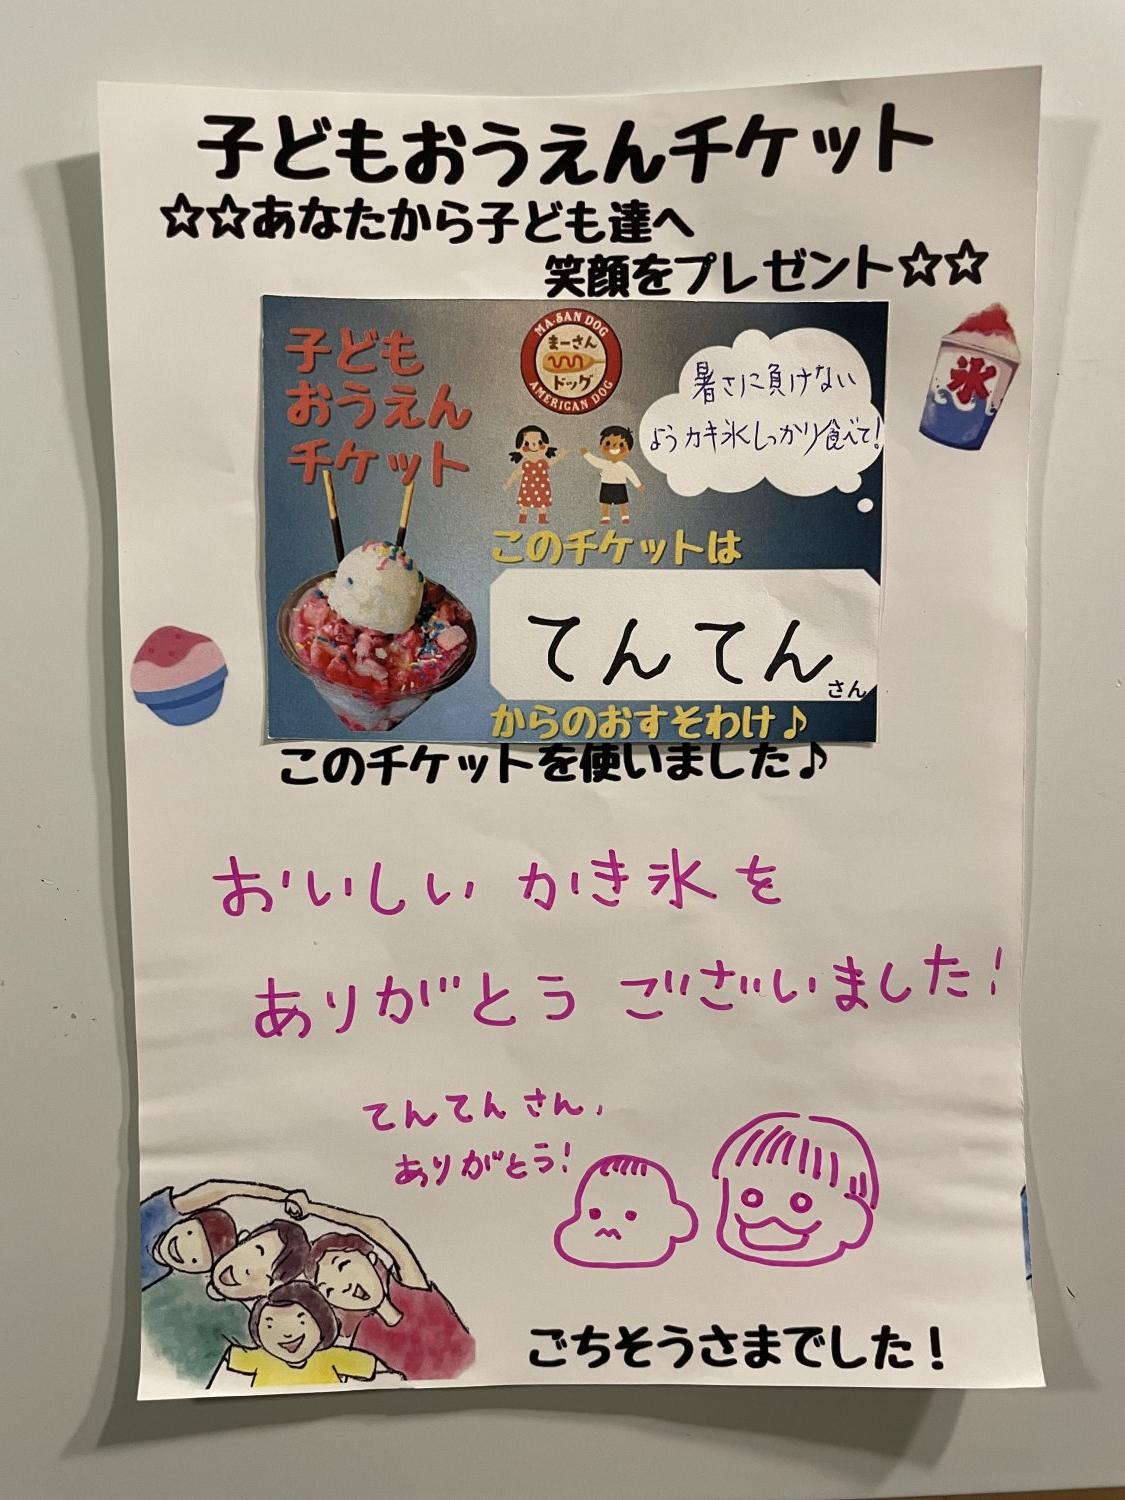 子どもおうえんチケット
☆☆あなたから子ども達へ
笑顔をプレゼント☆☆
子ども
おうえん
チケット
MA-SAN DOG
まーさん
ドッグ
AMERICAN DOG
暑さに負けない
ようカキ氷しっかり食べて!
氷
このチケットは
てんてん
さん
からのおすそわけ♪
このチケットを使いました♪
おいしい かき氷を
ありがとう ございました!
てんてんさん,
ありがとう!
ごちそうさまでした!